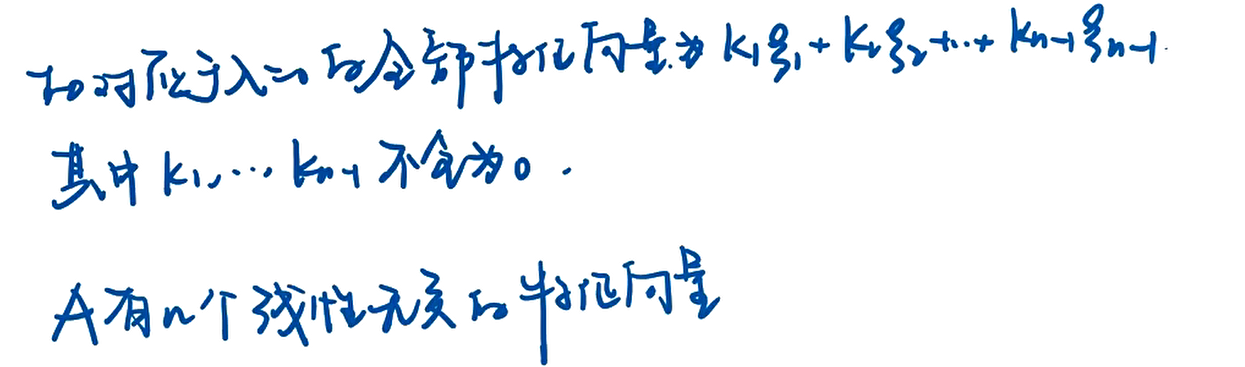 故对应于λ=0的全部特征向量为 k₁ξ₁+k₂ξ₂+…+kₙ₋₁ξₙ₋₁.
其中 k₁,…kₙ₋₁ 不全为0.
A有n个线性无关的特征向量